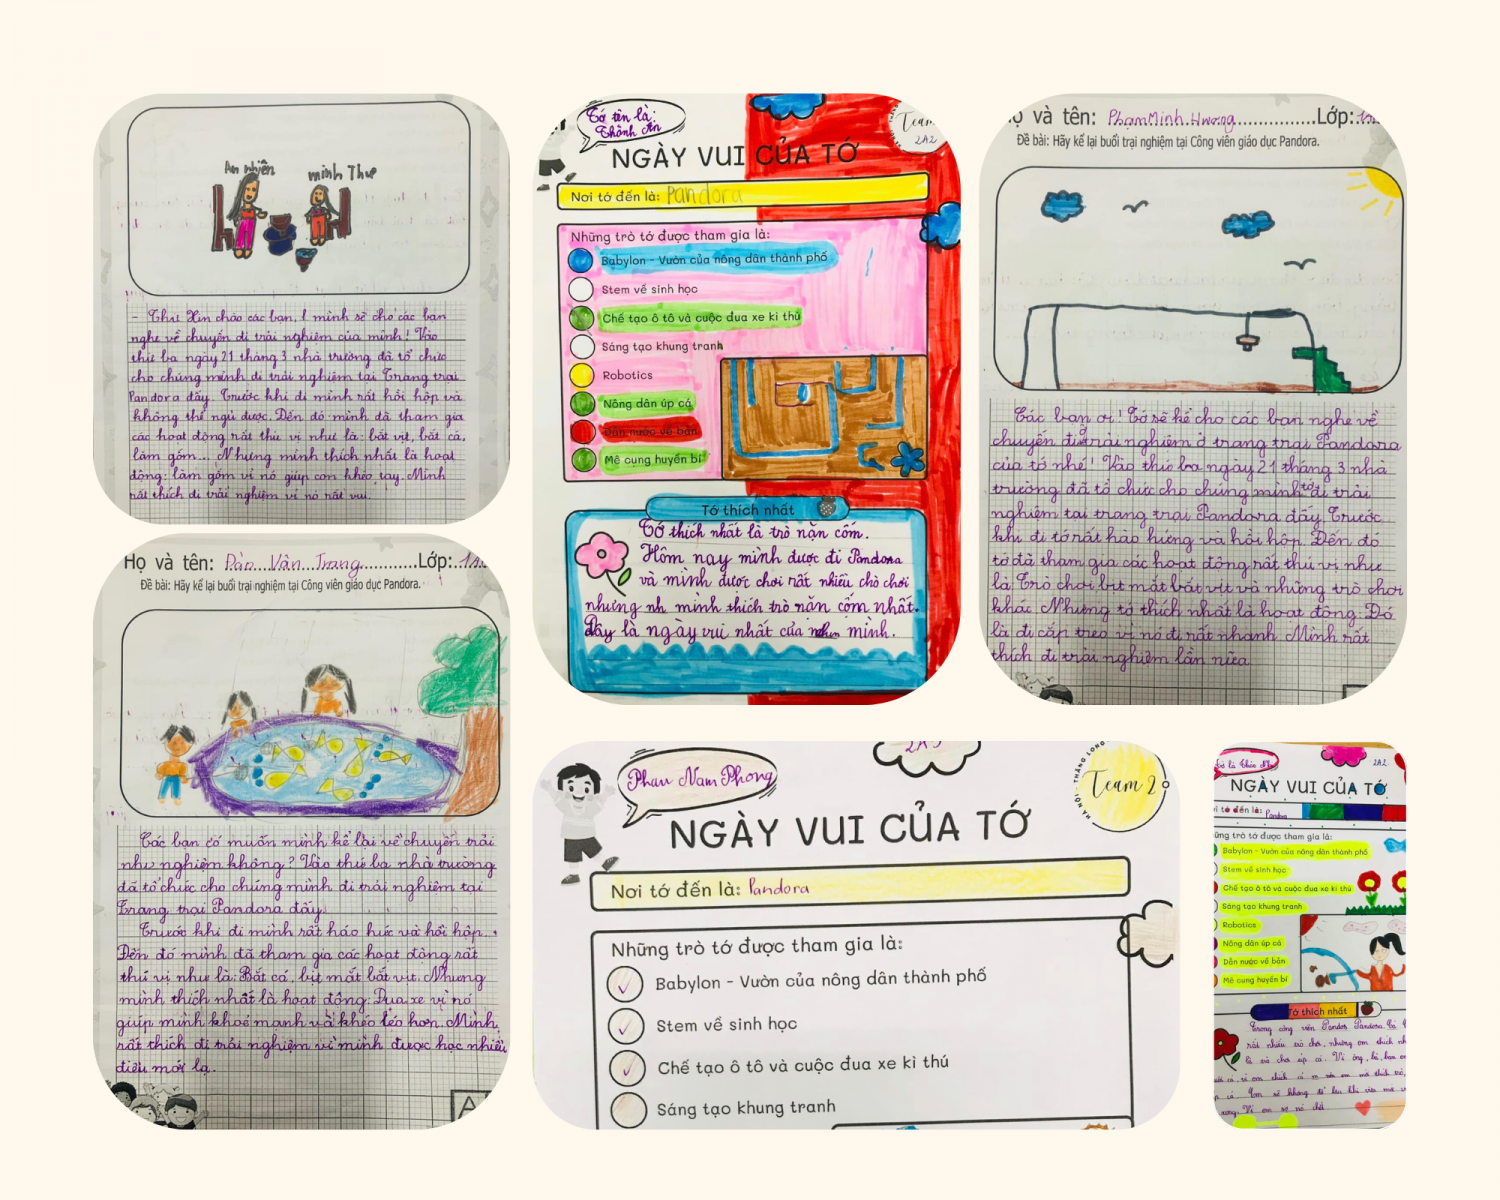 An nhiên
minh Thư
- Thư Xin chào các bạn, mình sẽ cho các bạn
nghe về chuyến đi trải nghiệm của mình! Vào
thứ ba ngày 21 tháng 3 nhà trường đã tổ chức
cho chúng mình đi trải nghiệm tại Trang trại
Pandora đấy. Trước khi đi mình rất hồi hộp và
không thể ngủ được. Đến đó mình đã tham gia
các hoạt động rất thú vị như là: bắt vịt, bắt cá,
làm gốm... Nhưng mình thích nhất là hoạt
động: làm gốm vì nó giúp con khéo tay. Mình
rất thích đi trải nghiệm vì nó rất vui.
Họ và tên: Đào Vân Trang Lớp:
Đề bài: Hãy kể lại buổi trại nghiệm tại Công viên giáo dục Pandora.
Các bạn có muốn mình kể lại về chuyến trải
như nghiệm không? Vào thứ ba nhà trường
đã tổ chức cho chúng mình đi trải nghiệm tại
Trang trại Pandora đấy.
Trước khi đi mình rất háo hức và hồi hộp.
Đến đó mình đã tham gia các hoạt động rất
thú vị như là: Bắt cá, bịt mắt bắt vịt. Nhưng
mình thích nhất là hoạt động. Đua xe vì nó
giúp mình khoẻ mạnh và khéo léo hơn. Mình
rất thích đi trải nghiệm vì mình được học nhiều
điều mới lạ.
Tớ tên là:
Thành An
Team
2A2
NGÀY VUI CỦA TỚ
Nơi tớ đến là: Pandora
Những trò tớ được tham gia là:
Babylon - Vườn của nông dân thành phố
Stem về sinh học
Chế tạo ô tô và cuộc đua xe kì thú
Sáng tạo khung tranh
Robotics
Nông dân úp cá
Dẫn nước về bản
Mê cung huyền bí
Tớ thích nhất
Tớ thích nhất là trò nặn cốm.
Hôm nay mình được đi Pandora
và mình được chơi rất nhiều chò chơi
nhưng nh mình thích trò nặn cốm nhất.
Đây là ngày vui nhất của mình.
ọ và tên: Phạm Minh Hương Lớp:
Đề bài: Hãy kể lại buổi trại nghiệm tại Công viên giáo dục Pandora.
Các bạn ơi! Tớ sẽ kể cho các bạn nghe về
chuyến đi trải nghiệm ở trang trại Pandora
của tớ nhé! Vào thứ ba ngày 21 tháng 3 nhà
trường đã tổ chức cho chúng mình tớ đi trải
nghiệm tại trang trại Pandora đấy. Trước
khi đi tớ rất hào hứng và hồi hộp. Đến đó
tớ đã tham gia các hoạt động rất thú vị như
là Trò chơi bịt mắt bắt vịt và những trò chơi
khác. Nhưng tớ thích nhất là hoạt động: Đó
là đi cáp treo vì nó đi rất nhanh. Mình rất
thích đi trải nghiệm lần nữa
Phan Nam Phong
2A3
HÀ NỘI THĂNG LONG
Team 2
NGÀY VUI CỦA TỚ
Nơi tớ đến là: Pandora
Những trò tớ được tham gia là:
Babylon - Vườn của nông dân thành phố
Stem về sinh học
Chế tạo ô tô và cuộc đua xe kì thú
Sáng tạo khung tranh
2A2
NGÀY VUI CỦA TỚ
i tớ đến là: Pandora
ững trò tớ được tham gia là:
Babylon - Vườn của nông dân thành phố
Stem về sinh học
Chế tạo ô tô và cuộc đua xe kì thú
Sáng tạo khung tranh
Robotics
Nông dân úp cá
Dẫn nước về bản
Mê cung huyền bí
Tớ thích nhất
Trong công viên Pandora
rất nhiều trò chơi, nhưng em thích
là trò chơi úp cá. Vì